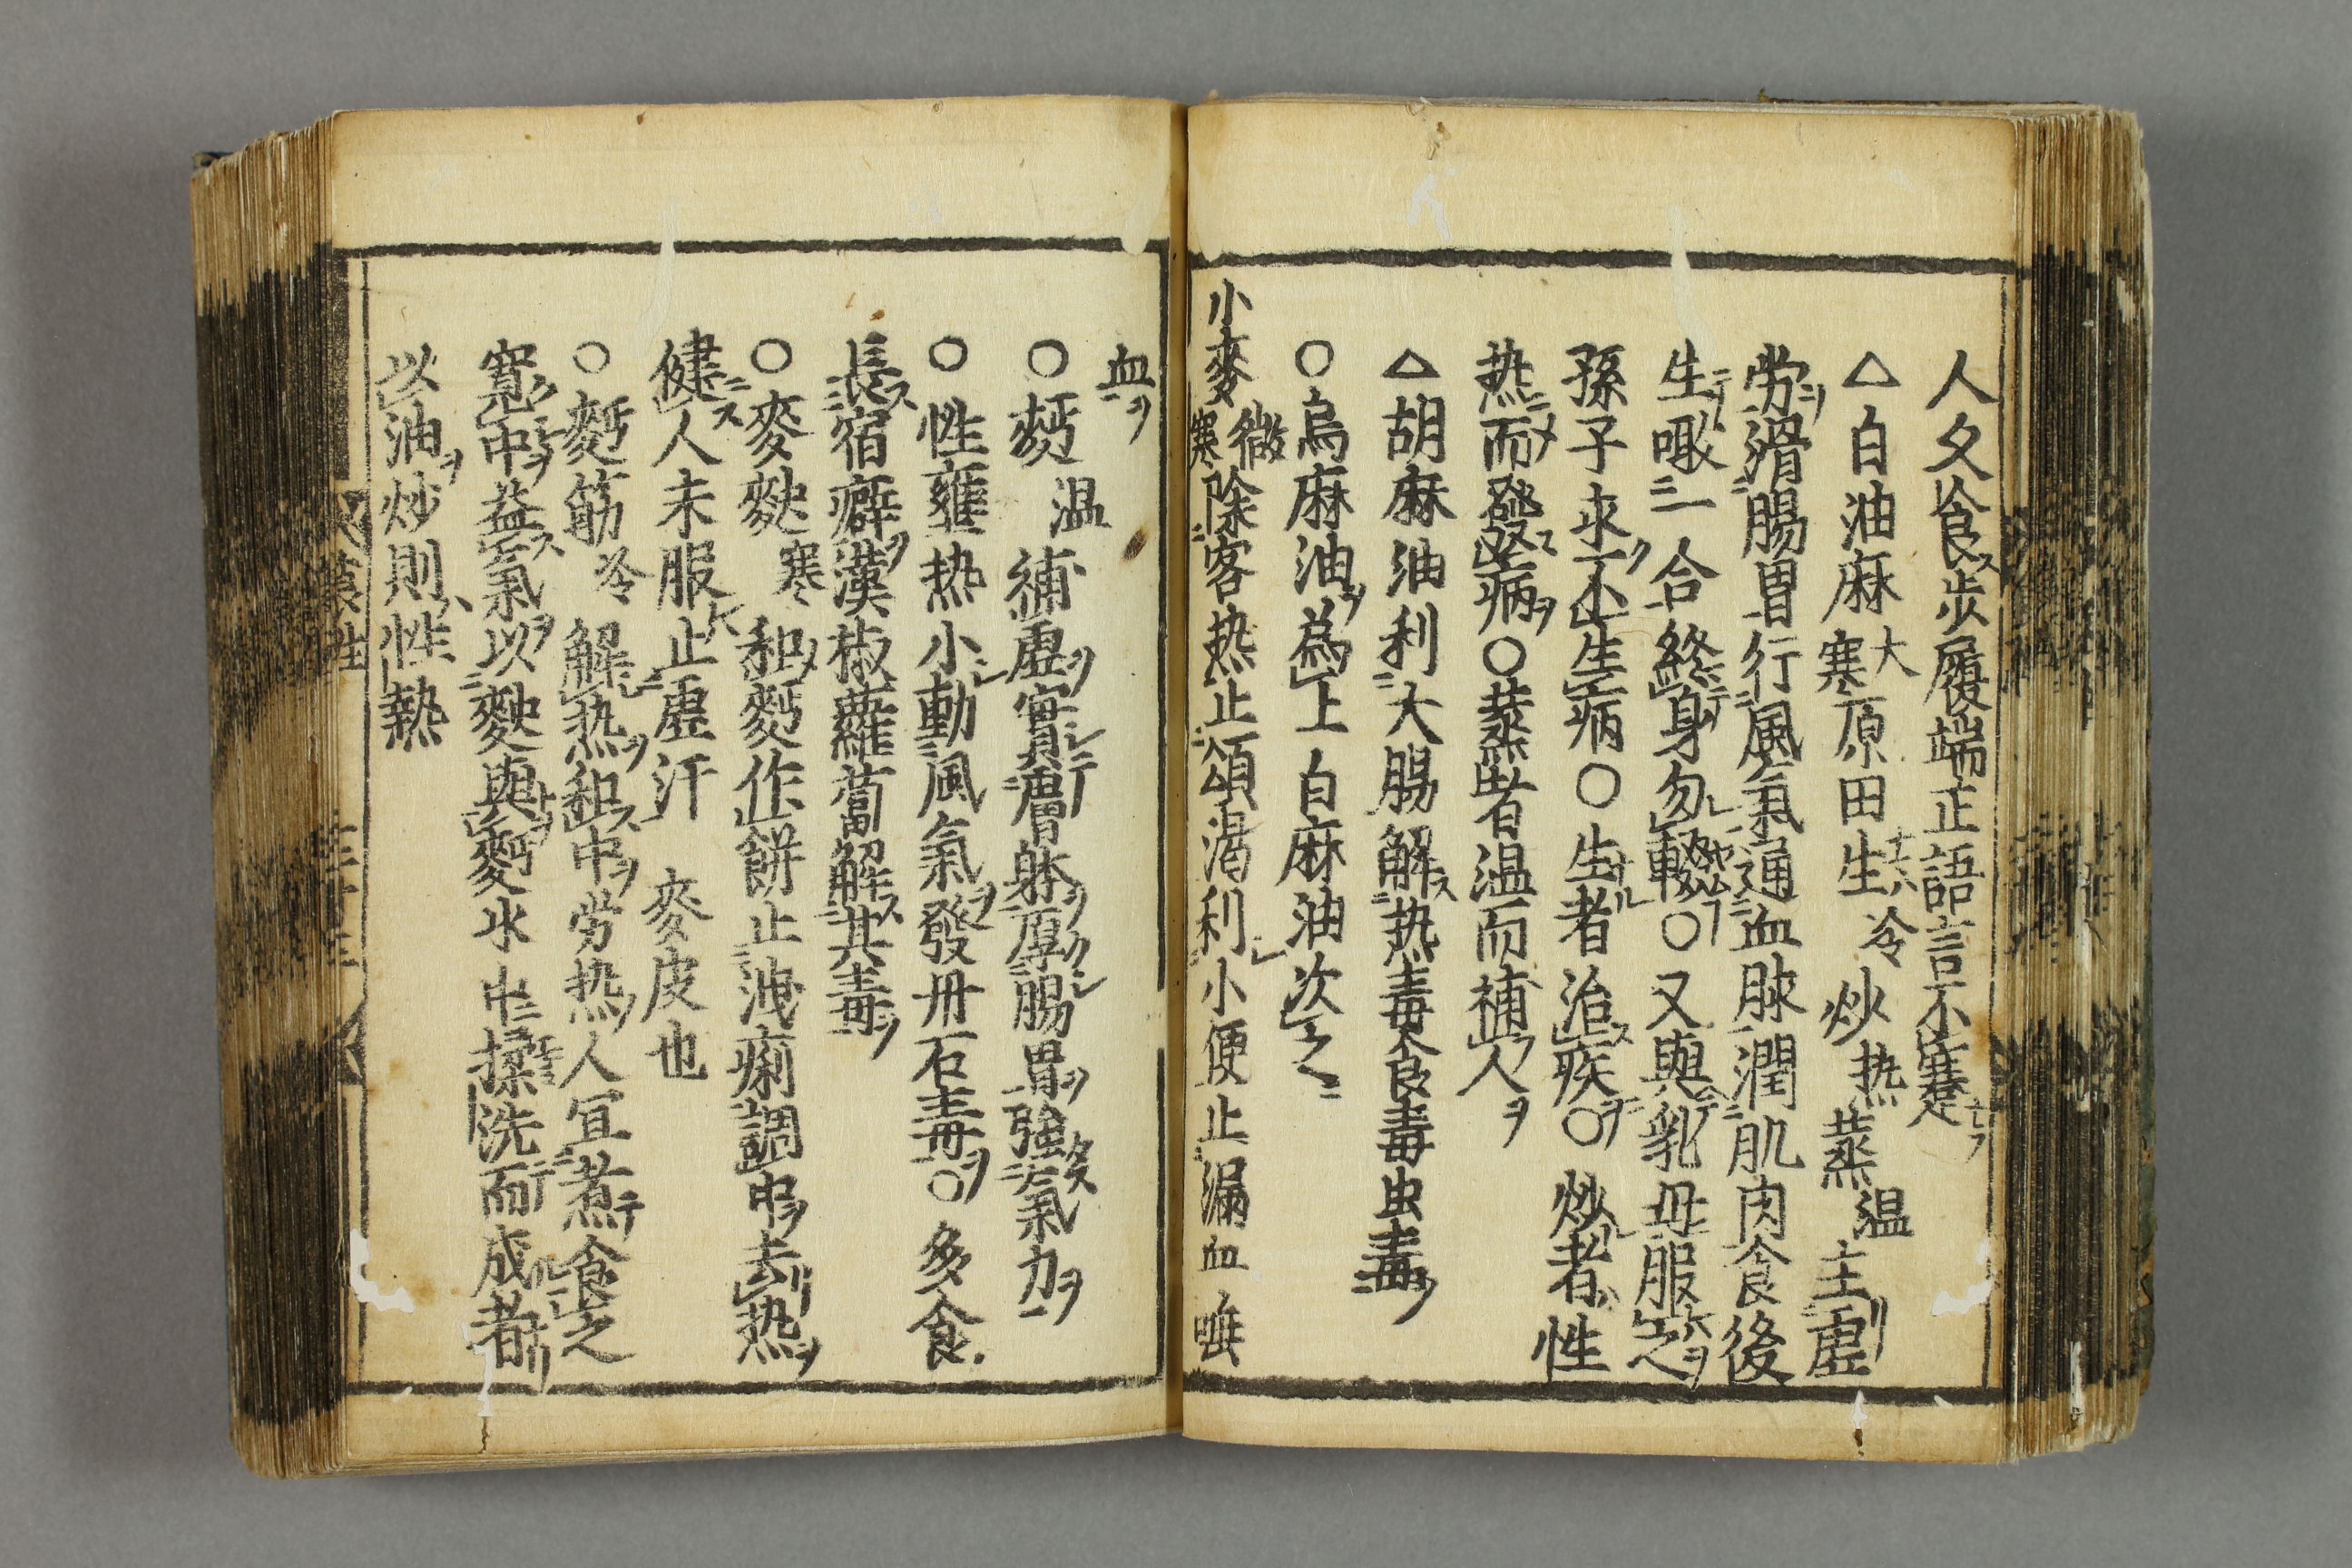 人久食ス步履端正語言不蹇
△白油麻大寒原田生冷炒热蒸温主虚
勞滑腸胃行風氣通血脉潤肌肉食後
生噉一合終身勿輟○又與乳母服之
孫子永不生病○生者治疾○炒者性
热而發病○蒸者温而補人
△胡麻油利大腸解热毒食毒虫毒
○烏麻油為上白麻油次之
小麥微寒除客热止煩渴利小便止漏血唾
血
○麪温補虚實膚躰厚腸胃強氣力
○性壅热小動風氣發丹石毒○多食
長宿癖漢椒蘿蔔解其毒
○麥麩寒和麪作餅止洩痢調中去热
健人未服止虚汗 麥皮也
○麪筋冷解热和中勞热人宜煮食之
寬中益氣以麩與麪水中揉洗而成者
以油炒則性熱